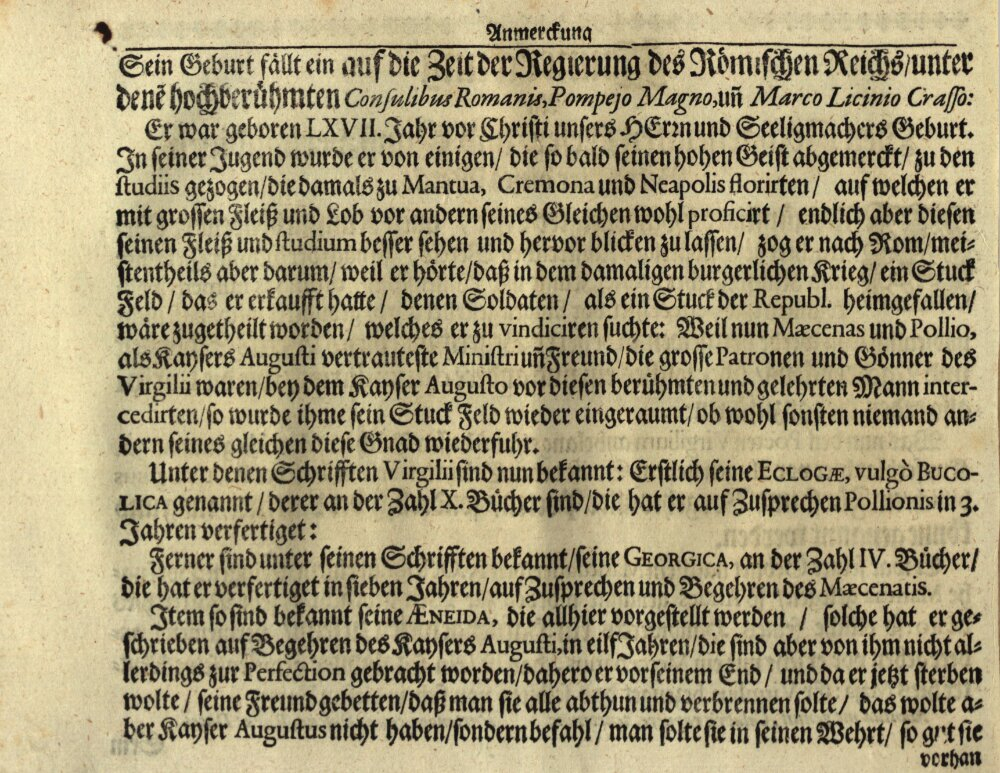 Anmerckung
Sein Geburt fällt ein auf die Zeit der Regierung des Römischen Reichs/unter
denē hochberühmten Consulibus Romanis, Pompejo Magno, uñ Marco Licinio Crasso:
Er war geboren LXVII. Jahr vor Christi unsers HErrn und Seeligmachers Geburt.
In seiner Jugend wurde er von einigen/ die so bald seinen hohen Geist abgemerckt/ zu den
studiis gezogen/die damals zu Mantua, Cremona und Neapolis florirten/ auf welchen er
mit grossen Fleiß und Lob vor andern seines Gleichen wohl proficirt/ endlich aber diesen
seinen Fleiß und studium besser sehen und hervor blicken zu lassen/ zog er nach Rom/mei-
stentheils aber darum/ weil er hörte/daß in dem damaligen burgerlichen Krieg/ ein Stuck
Feld/ das er erkaufft hatte/ denen Soldaten/ als ein Stuck der Republ. heimgefallen/
wäre zugetheilt worden/ welches er zu vindiciren suchte: Weil nun Mæcenas und Pollio,
als Kaysers Augusti vertrauteste Ministri uñ Freund/die grosse Patronen und Gönner des
Virgilii waren/bey dem Kayser Augusto vor diesen berühmten und gelehrten Mann inter-
cedirten/so wurde ihme sein Stuck Feld wieder eingeraumt/ob wohl sonsten niemand an-
dern seines gleichen diese Gnad wiederfuhr.
Unter denen Schrifften Virgilii sind nun bekannt: Erstlich seine ECLOGÆ, vulgò BUCO-
LICA genannt/derer an der Zahl X. Bücher sind/die hat er auf Zusprechen Pollionis in 3.
Jahren verfertiget:
Ferner sind unter seinen Schrifften bekannt/seine GEORGICA, an der Zahl IV. Bücher/
die hat er verfertiget in sieben Jahren/auf Zusprechen und Begehren des Mæcenatis.
Item so sind bekannt seine ÆNEIDA, die allhier vorgestellt werden/ solche hat er ge-
schrieben auf Begehren des Kaysers Augusti, in eilf Jahren/die sind aber von ihm nicht al-
lerdings zur Perfection gebracht worden/dahero er vor seinem End/ und da er jetzt sterben
wolte/ seine Freund gebetten/daß man sie alle abthun und verbrennen solte/ das wolte a-
ber Kayser Augustus nicht haben/sondern befahl/ man solte sie in seinen Wehrt/ so gut sie
vorhan